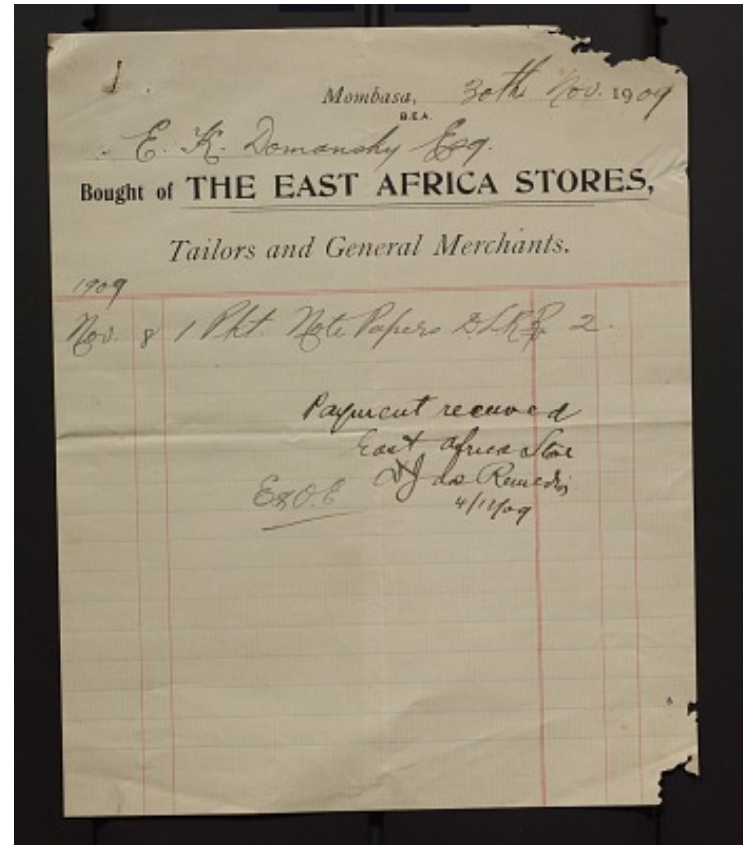 Mombasa, 30th Nov. 1909
B.E.A.
E. K. Domansky Esq.
Bought of THE EAST AFRICA STORES,
Tailors and General Merchants.
1909
Nov. 8 1 Pkt. Note Papers 2.
Payment received
East Africa Store
das Remedios
E&O.E
4/12/09